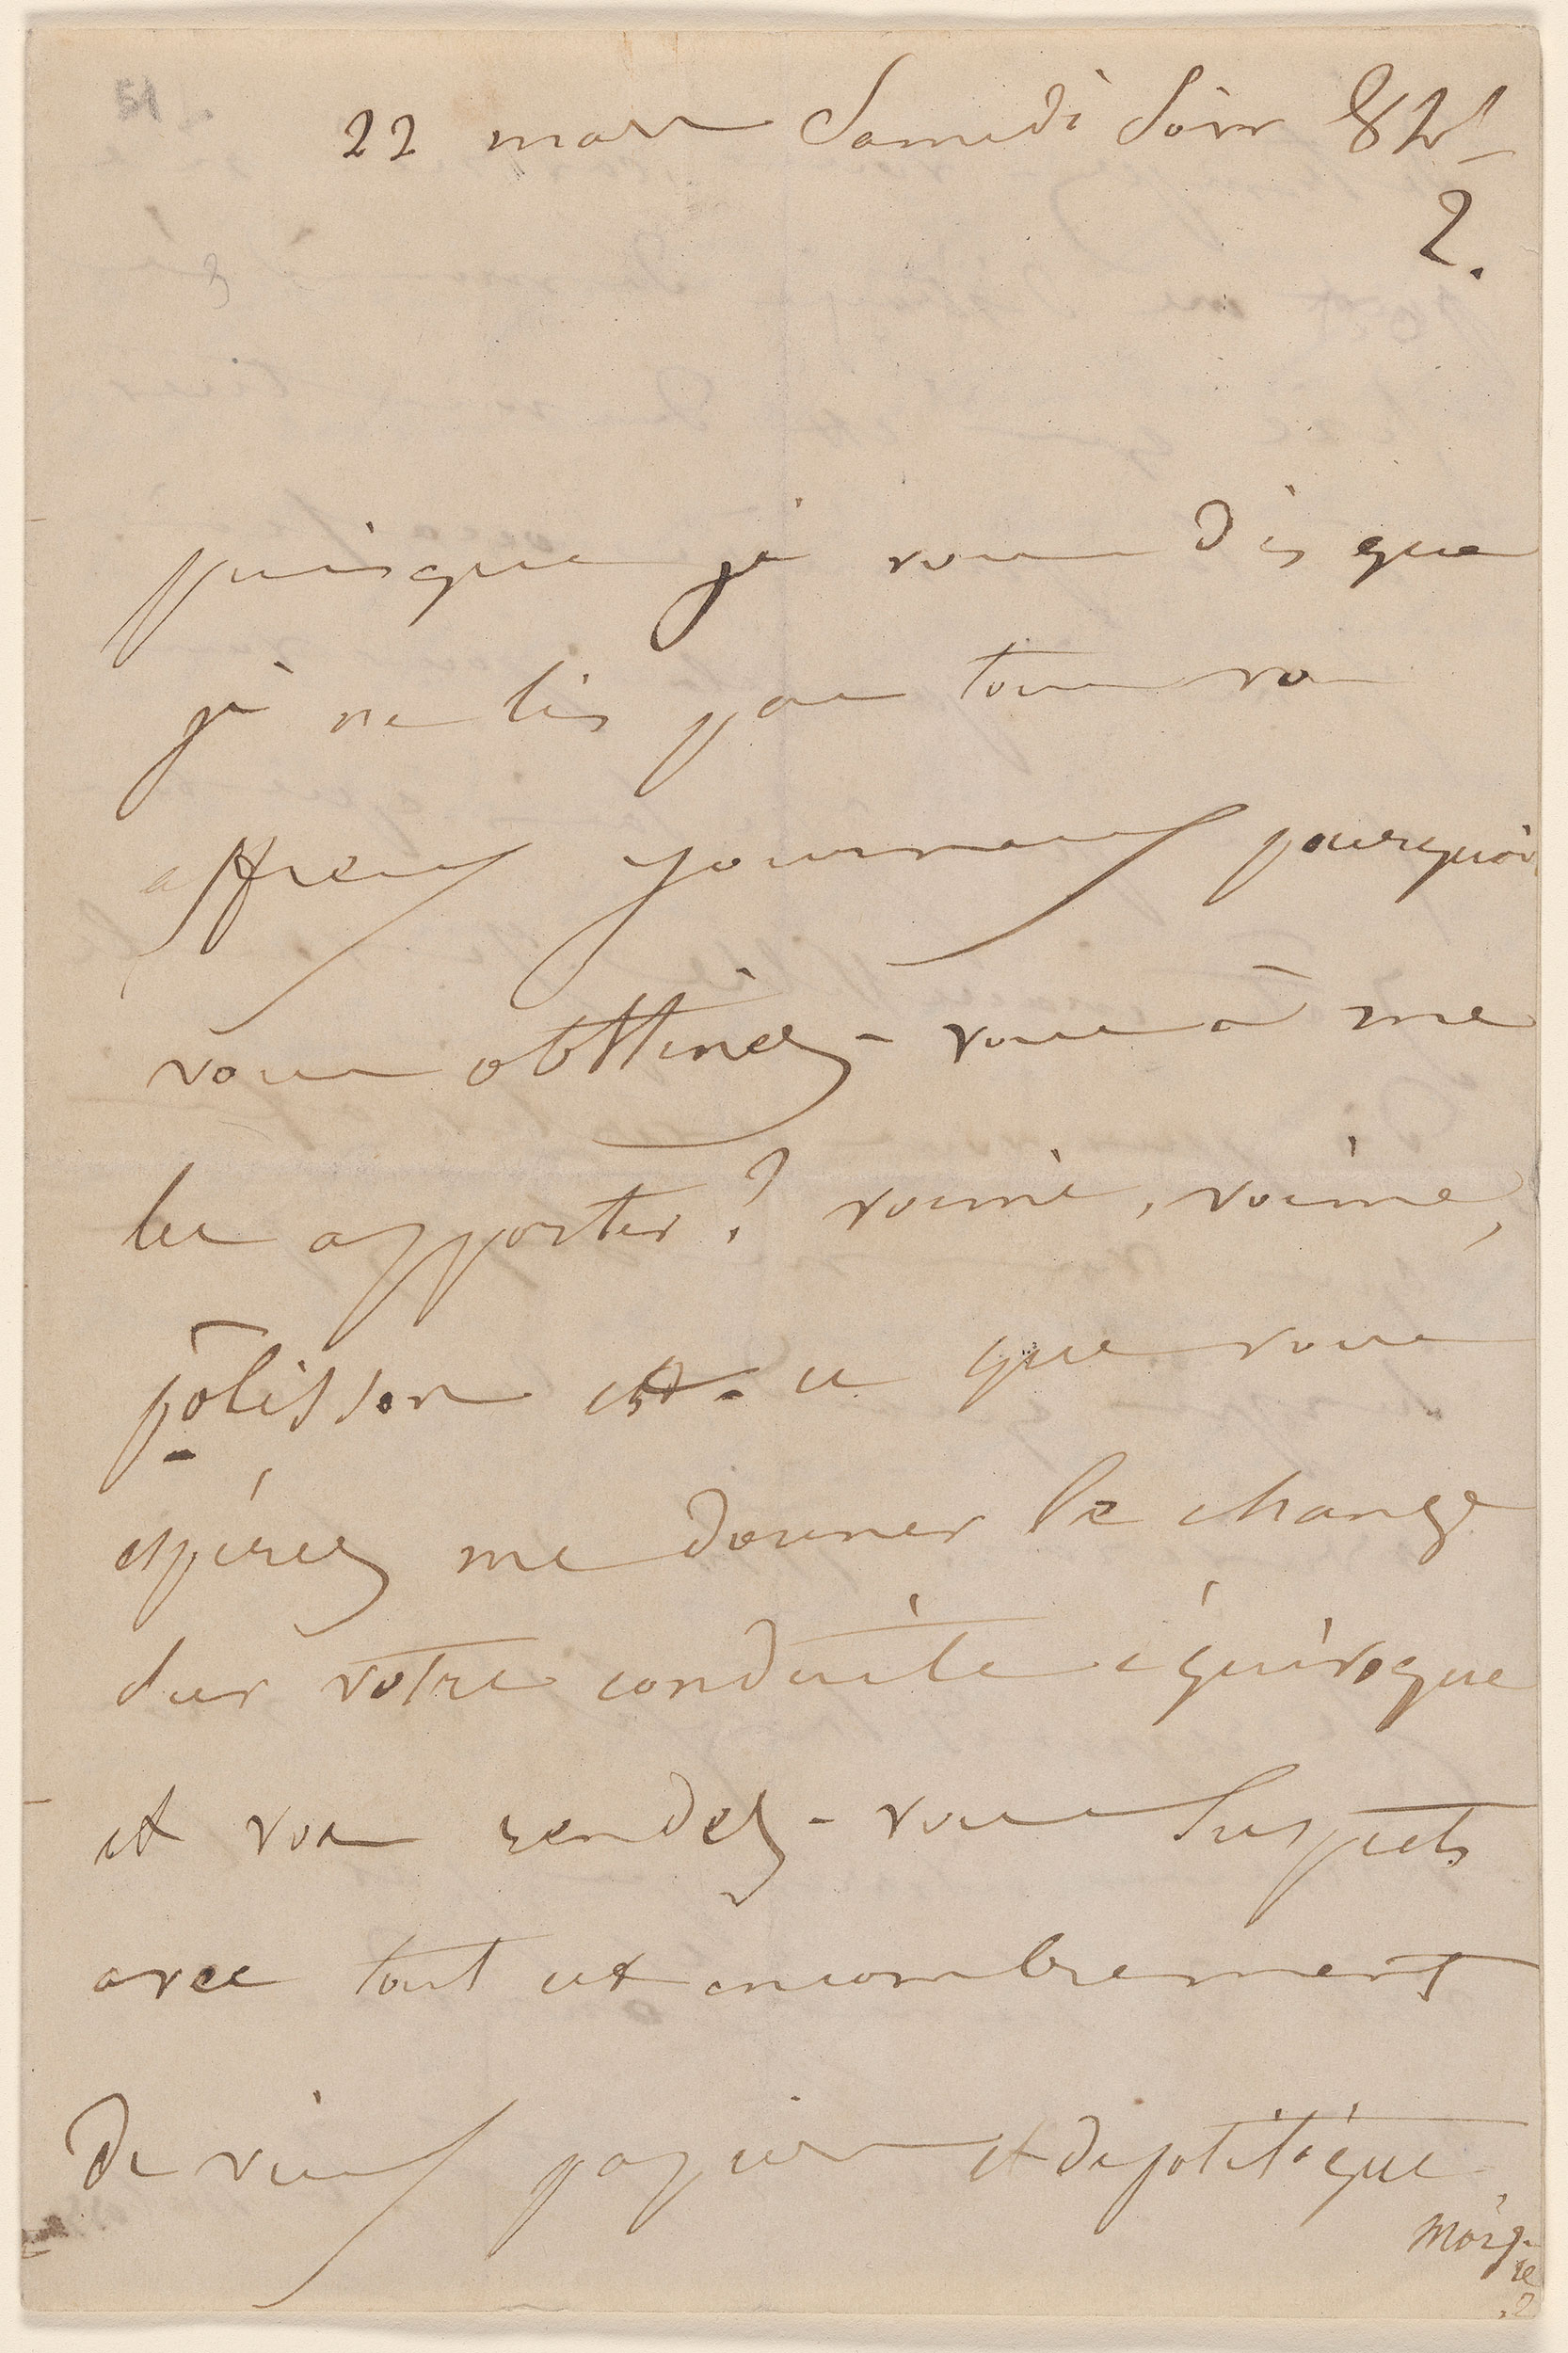 22 mars Samedi soir 8h ½
2.
puisque je vous dis que
je ne lis pas tous vos
affreux journaux pourquoi
vous obstinez-vous à me
les apporter? voime, voime,
polisson est-ce que vous
espérez me donner le change
sur votre conduite équivoque
et vos rendez-vous suspects
avec tout cet encombrement
de vieux papiers et de politique